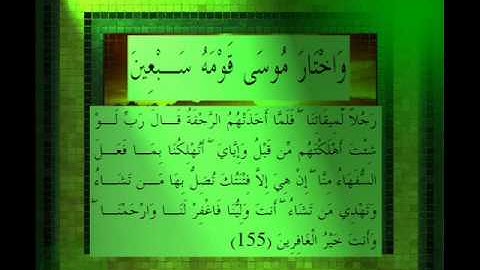 وَاخْتَارَ مُوسَى قَوْمَهُ سَبْعِينَ
رَجُلاً لِّمِيقَاتِنَا فَلَمَّا أَخَذَتْهُمُ الرَّجْفَةُ قَالَ رَبِّ لَوْ
شِئْتَ أَهْلَكْتَهُم مِّن قَبْلُ وَإِيَّايَ أَتُهْلِكُنَا بِمَا فَعَلَ
السُّفَهَاءُ مِنَّا إِنْ هِيَ إِلاَّ فِتْنَتُكَ تُضِلُّ بِهَا مَن تَشَاءُ
وَتَهْدِي مَن تَشَاءُ أَنتَ وَلِيُّنَا فَاغْفِرْ لَنَا وَارْحَمْنَا
وَأَنتَ خَيْرُ الْغَافِرِينَ (155)